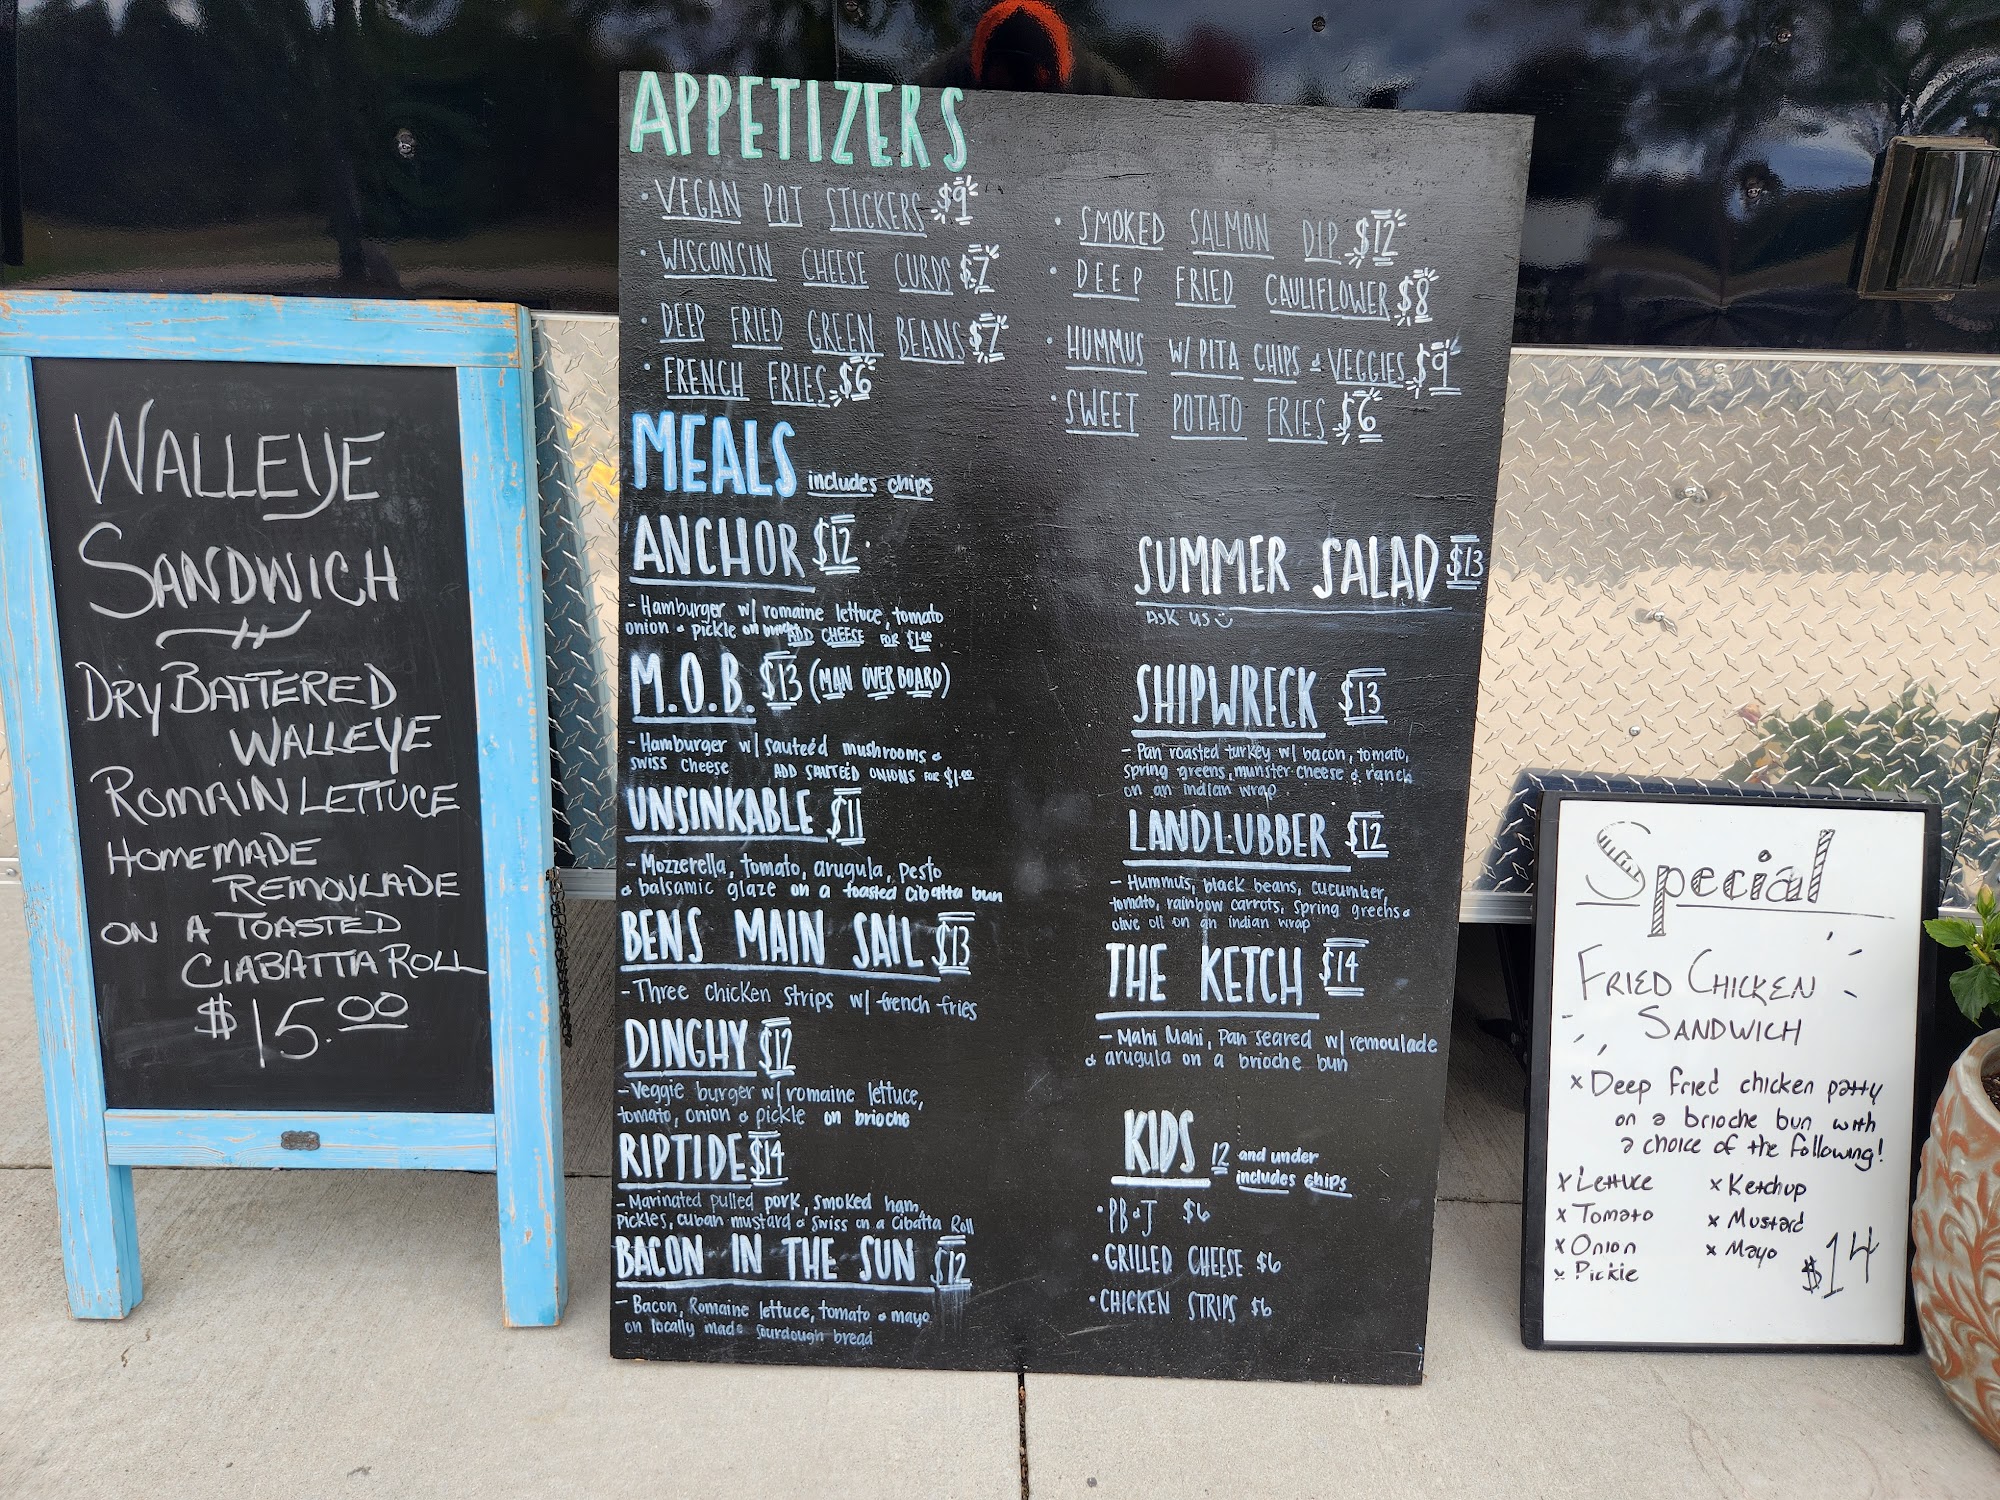 WALLEYE
SANDWICH
DRY BATTERED
WALLEYE
ROMAIN LETTUCE
HOMEMADE
REMOULADE
ON A TOASTED
CIABATTA ROLL
$15.00
APPETIZERS
• VEGAN POT STICKERS $9
• WISCONSIN CHEESE CURDS $7
• DEEP FRIED GREEN BEANS $7
• FRENCH FRIES $6
• SMOKED SALMON DIP $12
• DEEP FRIED CAULIFLOWER $8
• HUMMUS W/ PITA CHIPS & VEGGIES $9
• SWEET POTATO FRIES $6
MEALS includes chips
ANCHOR $12
- Hamburger w/ romaine lettuce, tomato
onion & pickle on ADD CHEESE FOR $1.00
M.O.B. $13 (MAN OVER BOARD)
- Hamburger w/ sauteéd mushrooms &
swiss cheese ADD SAUTEED ONIONS FOR $1.00
UNSINKABLE $11
- Mozzerella, tomato, arugula, pesto
& balsamic glaze on a toasted Cibatta bun
BENS MAIN SAIL $13
- Three chicken strips w/ french fries
DINGHY $12
- Veggie burger w/ romaine lettuce,
tomato, onion & pickle on brioche
RIPTIDE $14
- Marinated pulled pork, smoked ham,
pickles, cuban mustard & Swiss on a Cibatta Roll
BACON IN THE SUN $12
- Bacon, Romaine lettuce, tomato & mayo
on locally made sourdough bread
SUMMER SALAD $13
ASK US
SHIPWRECK $13
- Pan roasted turkey w/ bacon, tomato,
spring greens, munster cheese & ranch
on an indian wrap
LANDLUBBER $12
- Hummus, black beans, cucumber,
tomato, rainbow carrots, spring greens &
olive oil on an indian wrap
THE KETCH $14
- Mahi Mahi, Pan Seared w/ remoulade
& arugula on a brioche bun
KIDS 12 and under
includes chips
• PB & J $6
• GRILLED CHEESE $6
• CHICKEN STRIPS $6
Special
FRIED CHICKEN
SANDWICH
x Deep fried chicken patty
on a brioche bun with
a choice of the following!
x Lettuce
x Tomato
x Onion
x Pickle
x Ketchup
x Mustard
x Mayo
$14